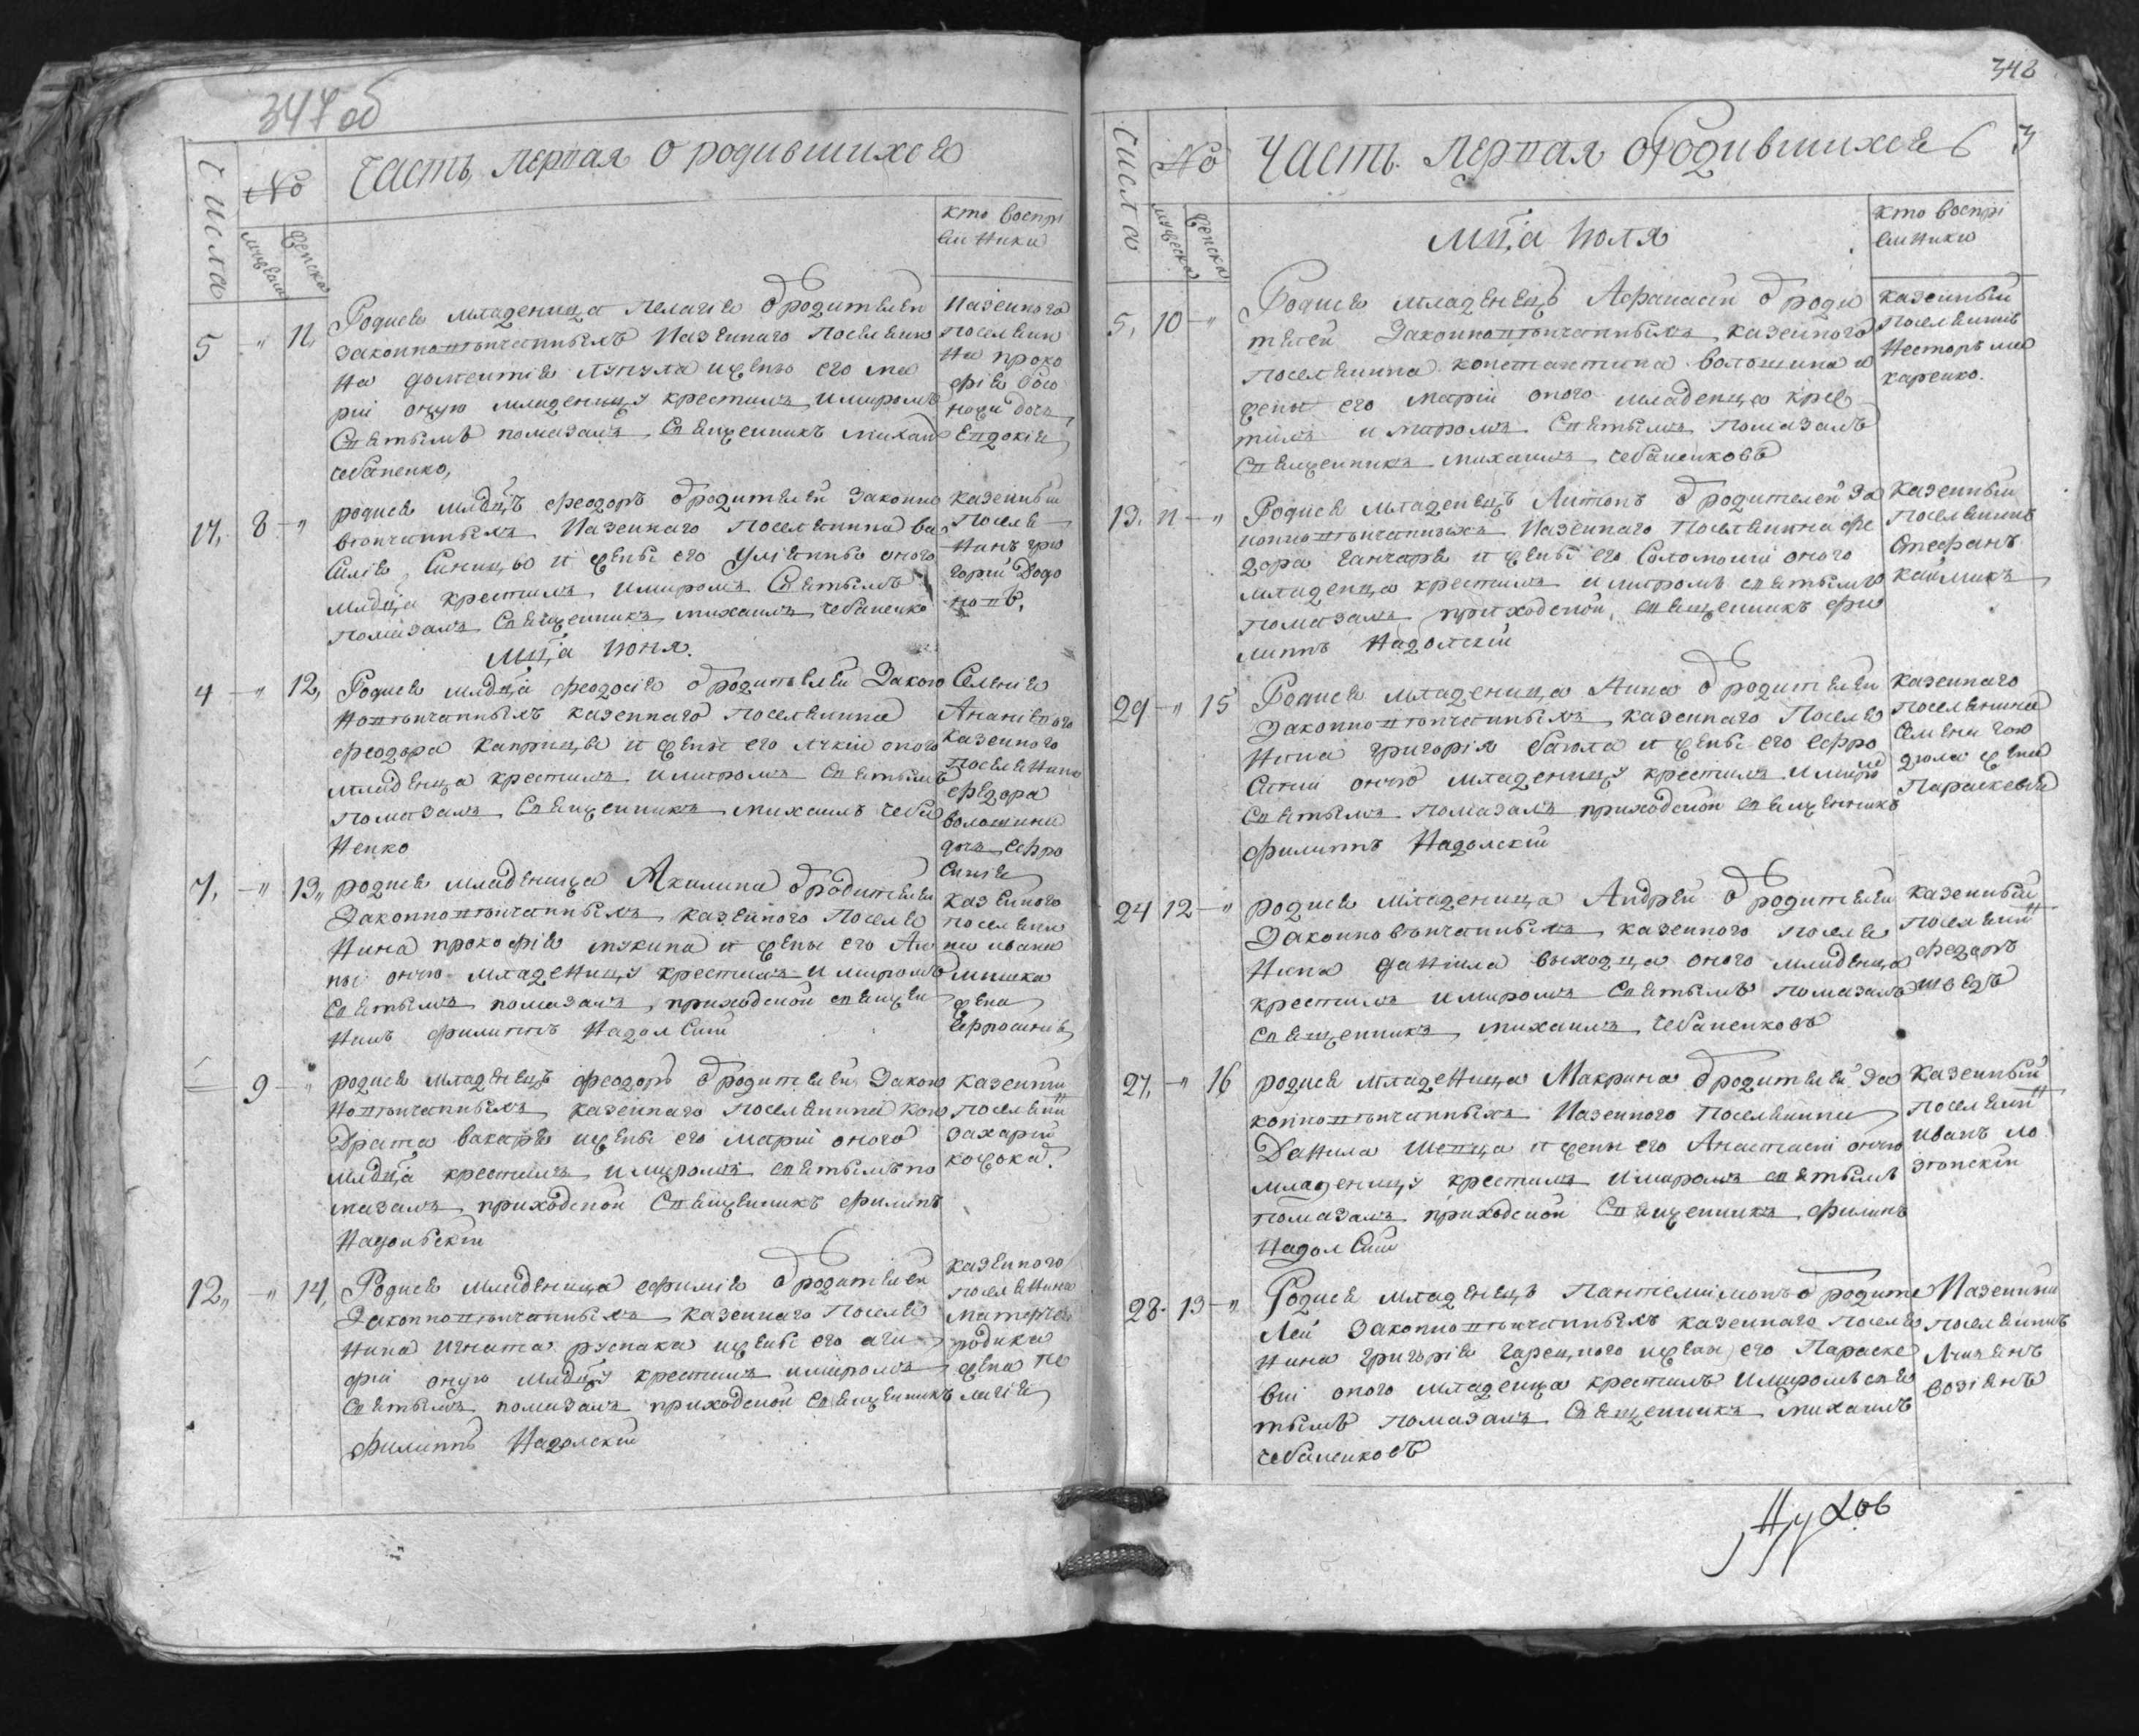 347 об
Часть первая о родившихся
Числа
№
мужеска
женска
кто воспрі
емники
5 " 11,
Родися младеница Пелагія ѿ родителей
законновѣнчанныхъ казеннаго поселяни
на Доментія Лупула и жены его Ма
ріи оную младеницу крестилъ и миромъ
святымъ помазалъ священникъ Михаил
Чебаненко,
казеннаго
поселяни
на Проко
фія
дочь
Евдокія
17, 8 "
родися млднцъ Феодоръ ѿ родителей законно
вѣнчанныхъ казеннаго поселянина Ва
силія Синицы и жены его Уліянны онаго
млднца крестилъ и миромъ святымъ
помазалъ священникъ Михаилъ Чебаненко
казенный
поселя
нинъ Гри
горій Додо
новъ.
мца июня.
4 " 12,
Родися млднца Феодосія ѿ родителей закон
новѣнчанныхъ казеннаго поселянина
Феодора Каприцы и жены его Лукіи оного
младенца крестилъ и миромъ святымъ
помазалъ священникъ Михаилъ Чеба
ненко
Селенія
Ананіевого
казенного
поселянина
Федора
Волошина
дочь Евфро
синія
7, " 13,
родися младеница Акилина ѿ родителей
законновѣнчанныхъ казенного поселя
нина Прокофія Мукина и жены его Ан
ны оную младеницу крестилъ и миромъ
святымъ помазалъ приходской священ
никъ Филиппъ Надолскій
казенного
поселяни
на Ивана
Мишка
жена
Ефросинія
9 "
родися младенецъ Феодоръ ѿ родителей закон
новѣнчанныхъ казеннаго поселянина Кон
драта Вакаря и жены его Маріи оного
млднца крестилъ и миромъ святымъ по
мазалъ приходской священникъ Филипъ
Надольскій
казенный
поселянин
Захарій
Кожока.
12, " 14,
Родися младеница Ефимія ѿ родителей
законновѣнчанныхъ казеннаго поселя
нина Игната Руснака и жены его Ага
фіи оную млдцу крестилъ и миромъ
святымъ помазалъ приходской священникъ
Филиппъ Надолскій
казенного
поселянина
родика
жена Пе
лагія
348
3
Числа
№
мужеска
женска
Часть первая о родившихся
мца июля
кто воспрі
емники
5, 10 "
Родися младенецъ Афанасій ѿ роди
телей законновѣнчанныхъ казенного
поселянина Константина Волошина и
жены его Маріи оного младенца крес
тилъ и миромъ святымъ помазалъ
священникъ Михаилъ Чебаненковъ
казенный
поселянинъ
Несторъ Ма
каренко.
13. 11 "
Родися младенецъ Антонъ ѿ родителей за
конновѣнчанныхъ казеннаго поселянина Фе
дора Ганчаря и жены его Соломоніи оного
младенца крестилъ и миромъ святымъ
помазалъ приходской священникъ Фи
липпъ Надолскій
казенный
поселянинъ
Стефанъ
Каймикъ
29 " 15
Родися младеница Анна ѿ родителей
законновѣнчанныхъ казеннаго поселя
нина Григорія Баюла и жены его Евфро
синіи оную младеницу крестилъ и миро
святымъ помазалъ приходской священникъ
Филиппъ Надолскій
казеннаго
поселянина
Семена
жена
Параскевія
24 12 "
родися младеница Андрей ѿ родителей
законновѣнчанныхъ казенного поселя
нина Даніила Выходца оного младенца
крестилъ и миромъ святымъ помазалъ
священникъ Михаилъ Чебаненковъ
казенный
поселянин
Федоръ
Шведъ
27, " 16
родися младеница Макрина ѿ родителей за
конновѣнчанныхъ казенного поселянина
Данила Шевца и жены его Анастасіи оную
младеницу крестилъ и миромъ святымъ
помазалъ приходской священникъ Филипъ
Надолскій
казенный
поселянин
Иванъ Ло
28. 13 "
Родися младенецъ Пантелимонъ ѿ родите
лей законновѣнчанныхъ казенного поселя
нина Григорія и жены его Параске
віи оного младенца крестилъ и миромъ свя
тымъ помазалъ священникъ Михаилъ
Чебаненковъ
казенный
поселянинъ
Лукянъ
Возіянъ